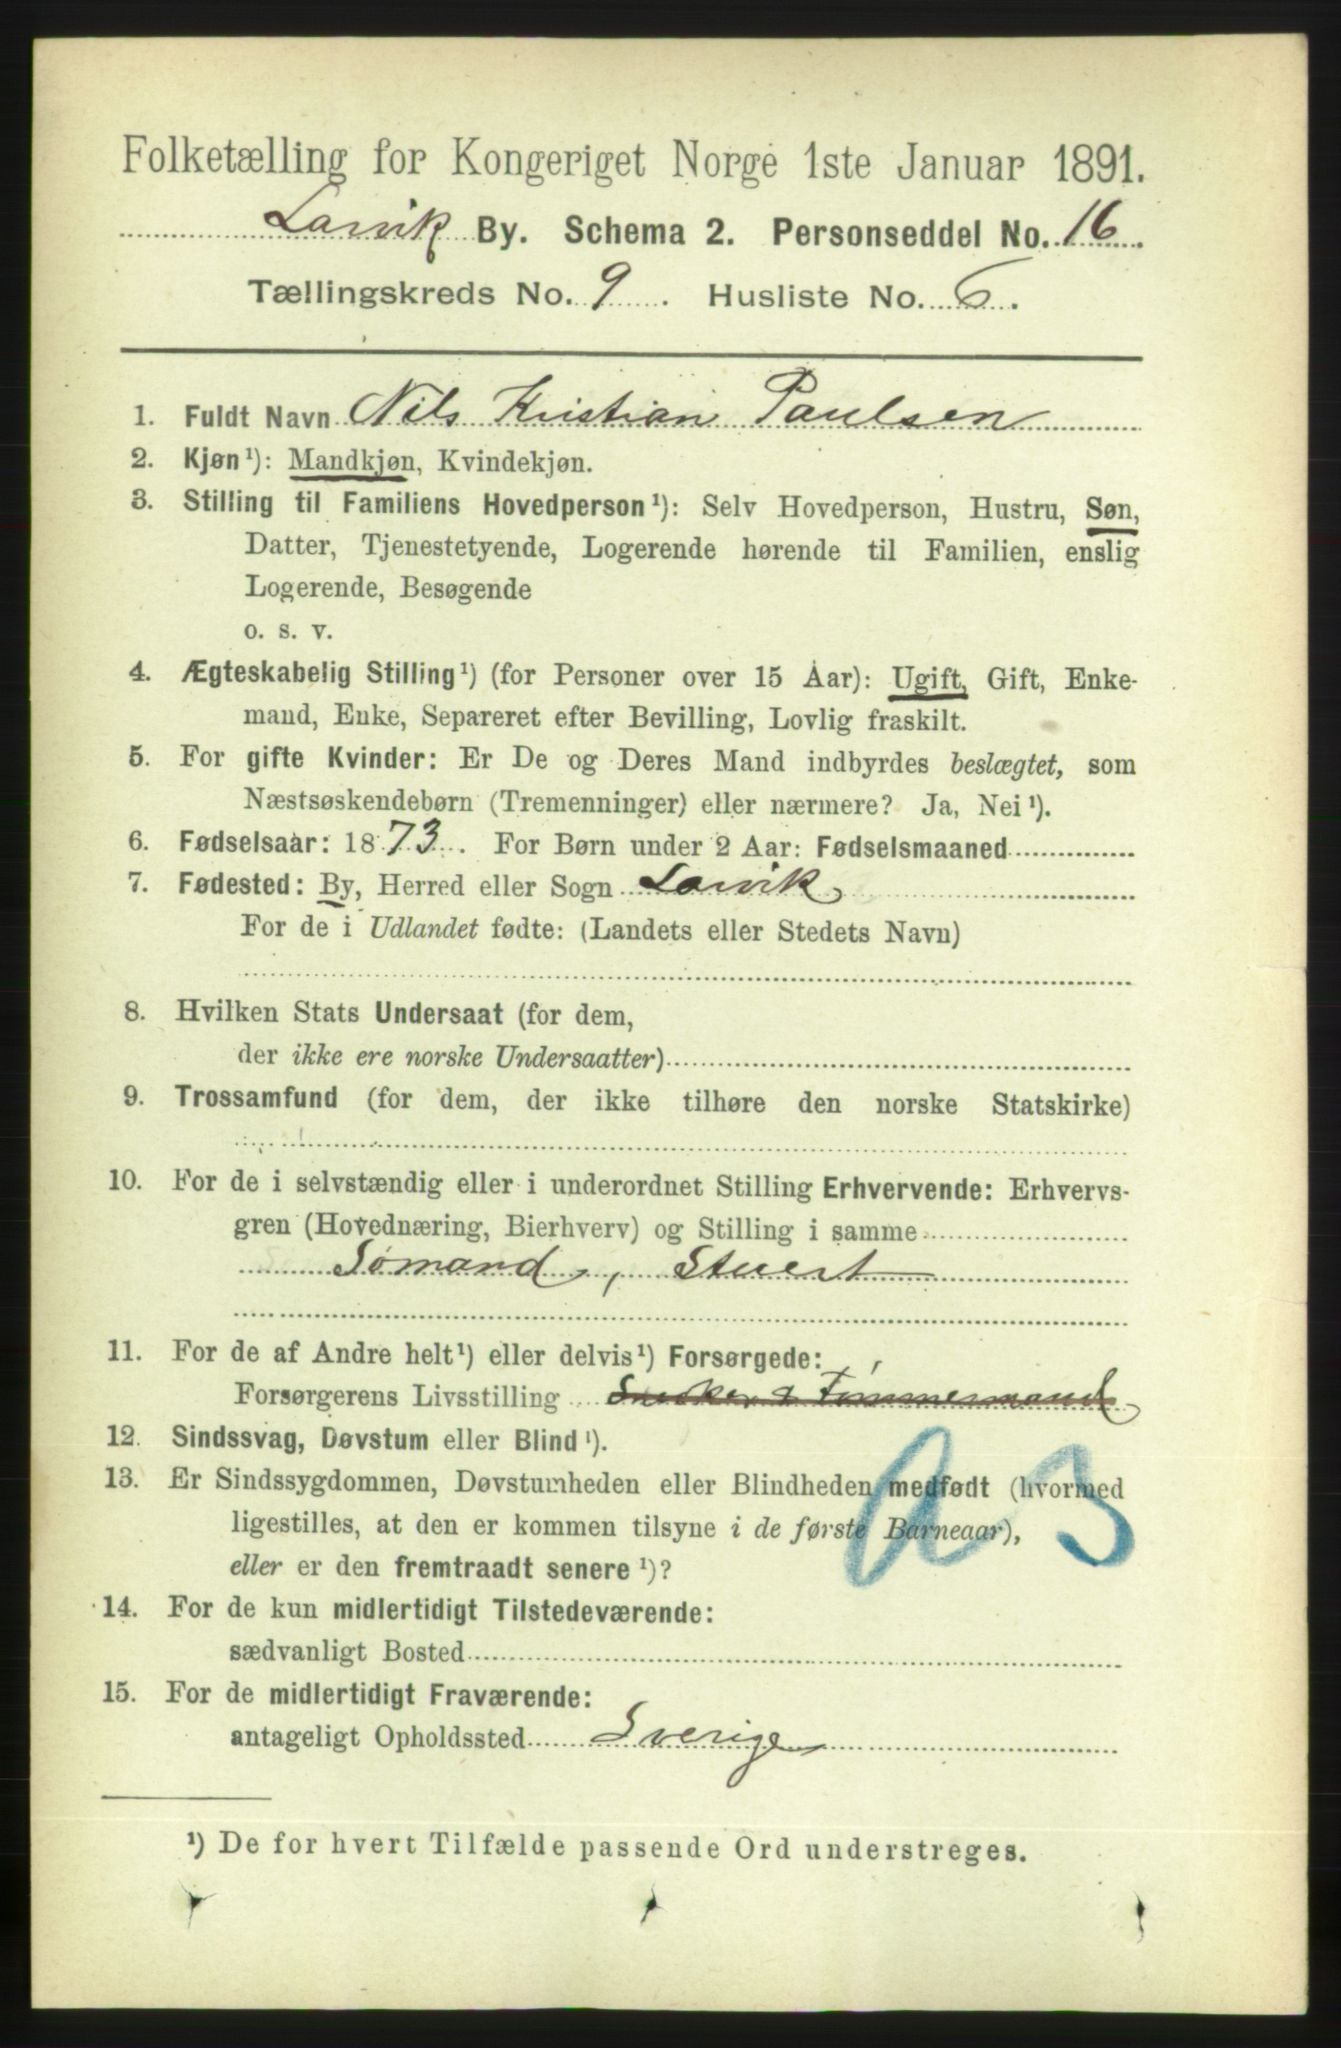 Folketælling for Kongeriget Norge 1ste Januar 1891.
Larvik By. Schema 2. Personseddel No. 16.
Tællingskreds No. 9. Husliste No. 6.
1. Fuldt Navn Nils Kristian Paulsen
2. Kjøn ¹): Mandkjøn, Kvindekjøn.
3. Stilling til Familiens Hovedperson ¹): Selv Hovedperson, Hustru, Søn,
Datter, Tjenestetyende, Logerende hørende til Familien, enslig
Logerende, Besøgende
o. s. v.
4. Ægteskabelig Stilling ¹) (for Personer over 15 Aar): Ugift, Gift, Enke-
mand, Enke, Separeret efter Bevilling, Lovlig fraskilt.
5. For gifte Kvinder: Er De og Deres Mand indbyrdes beslægtet, som
Næstsøskendebørn (Tremenninger) eller nærmere? Ja, Nei ¹).
6. Fødselsaar: 1873. For Børn under 2 Aar: Fødselsmaaned
7. Fødested: By, Herred eller Sogn Larvik
For de i Udlandet fødte: (Landets eller Stedets Navn)
8. Hvilken Stats Undersaat (for dem,
der ikke ere norske Undersaatter)
9. Trossamfund (for dem, der ikke tilhøre den norske Statskirke)
10. For de i selvstændig eller i underordnet Stilling Erhvervende: Erhvervs-
gren (Hovednæring, Bierhverv) og Stilling i samme
Sømand, Stuert
11. For de af Andre helt ¹) eller delvis ¹) Forsørgede:
Forsørgerens Livsstilling Snedker & Tømmermand
12. Sindssvag, Døvstum eller Blind ¹).
13. Er Sindssygdommen, Døvstumheden eller Blindheden medfødt (hvormed
ligestilles, at den er kommen tilsyne i de første Barneaar),
eller er den fremtraadt senere ¹)?
14. For de kun midlertidigt Tilstedeværende:
sædvanligt Bosted
15. For de midlertidigt Fraværende:
antageligt Opholdssted Sverige
¹) De for hvert Tilfælde passende Ord understreges.